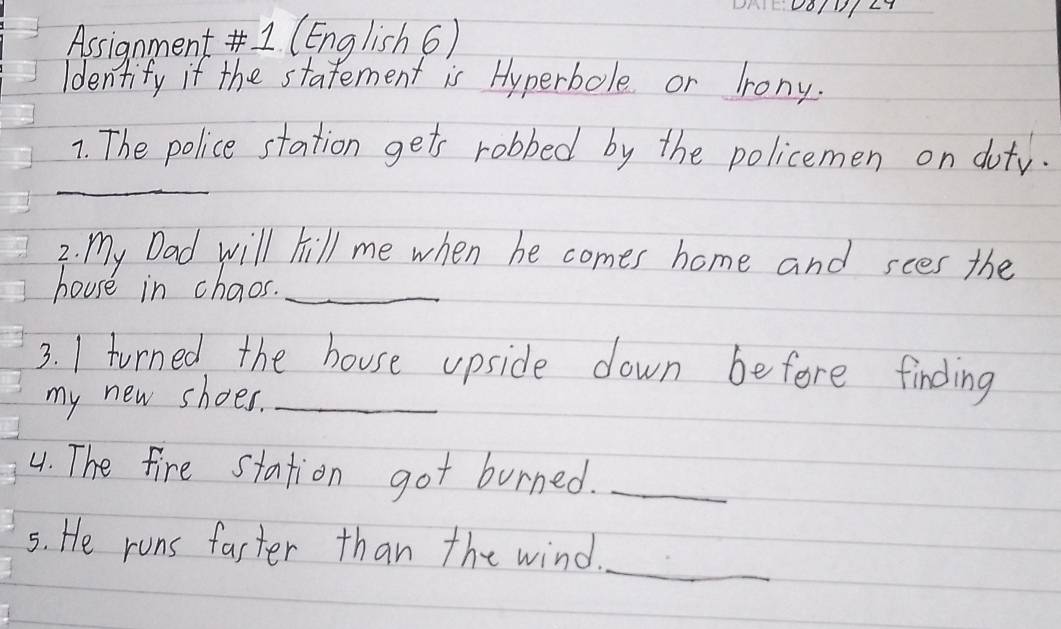 DATE: 08/13/24
Assignment #1 (English 6)
Identify if the statement is Hyperbole or Irony.
1. The police station gets robbed by the policemen on duty.
2. My Dad will kill me when he comes home and sees the
house in chaos.
3. I turned the house upside down before finding
my new shoes.
4. The fire station got burned.
5. He runs faster than the wind.